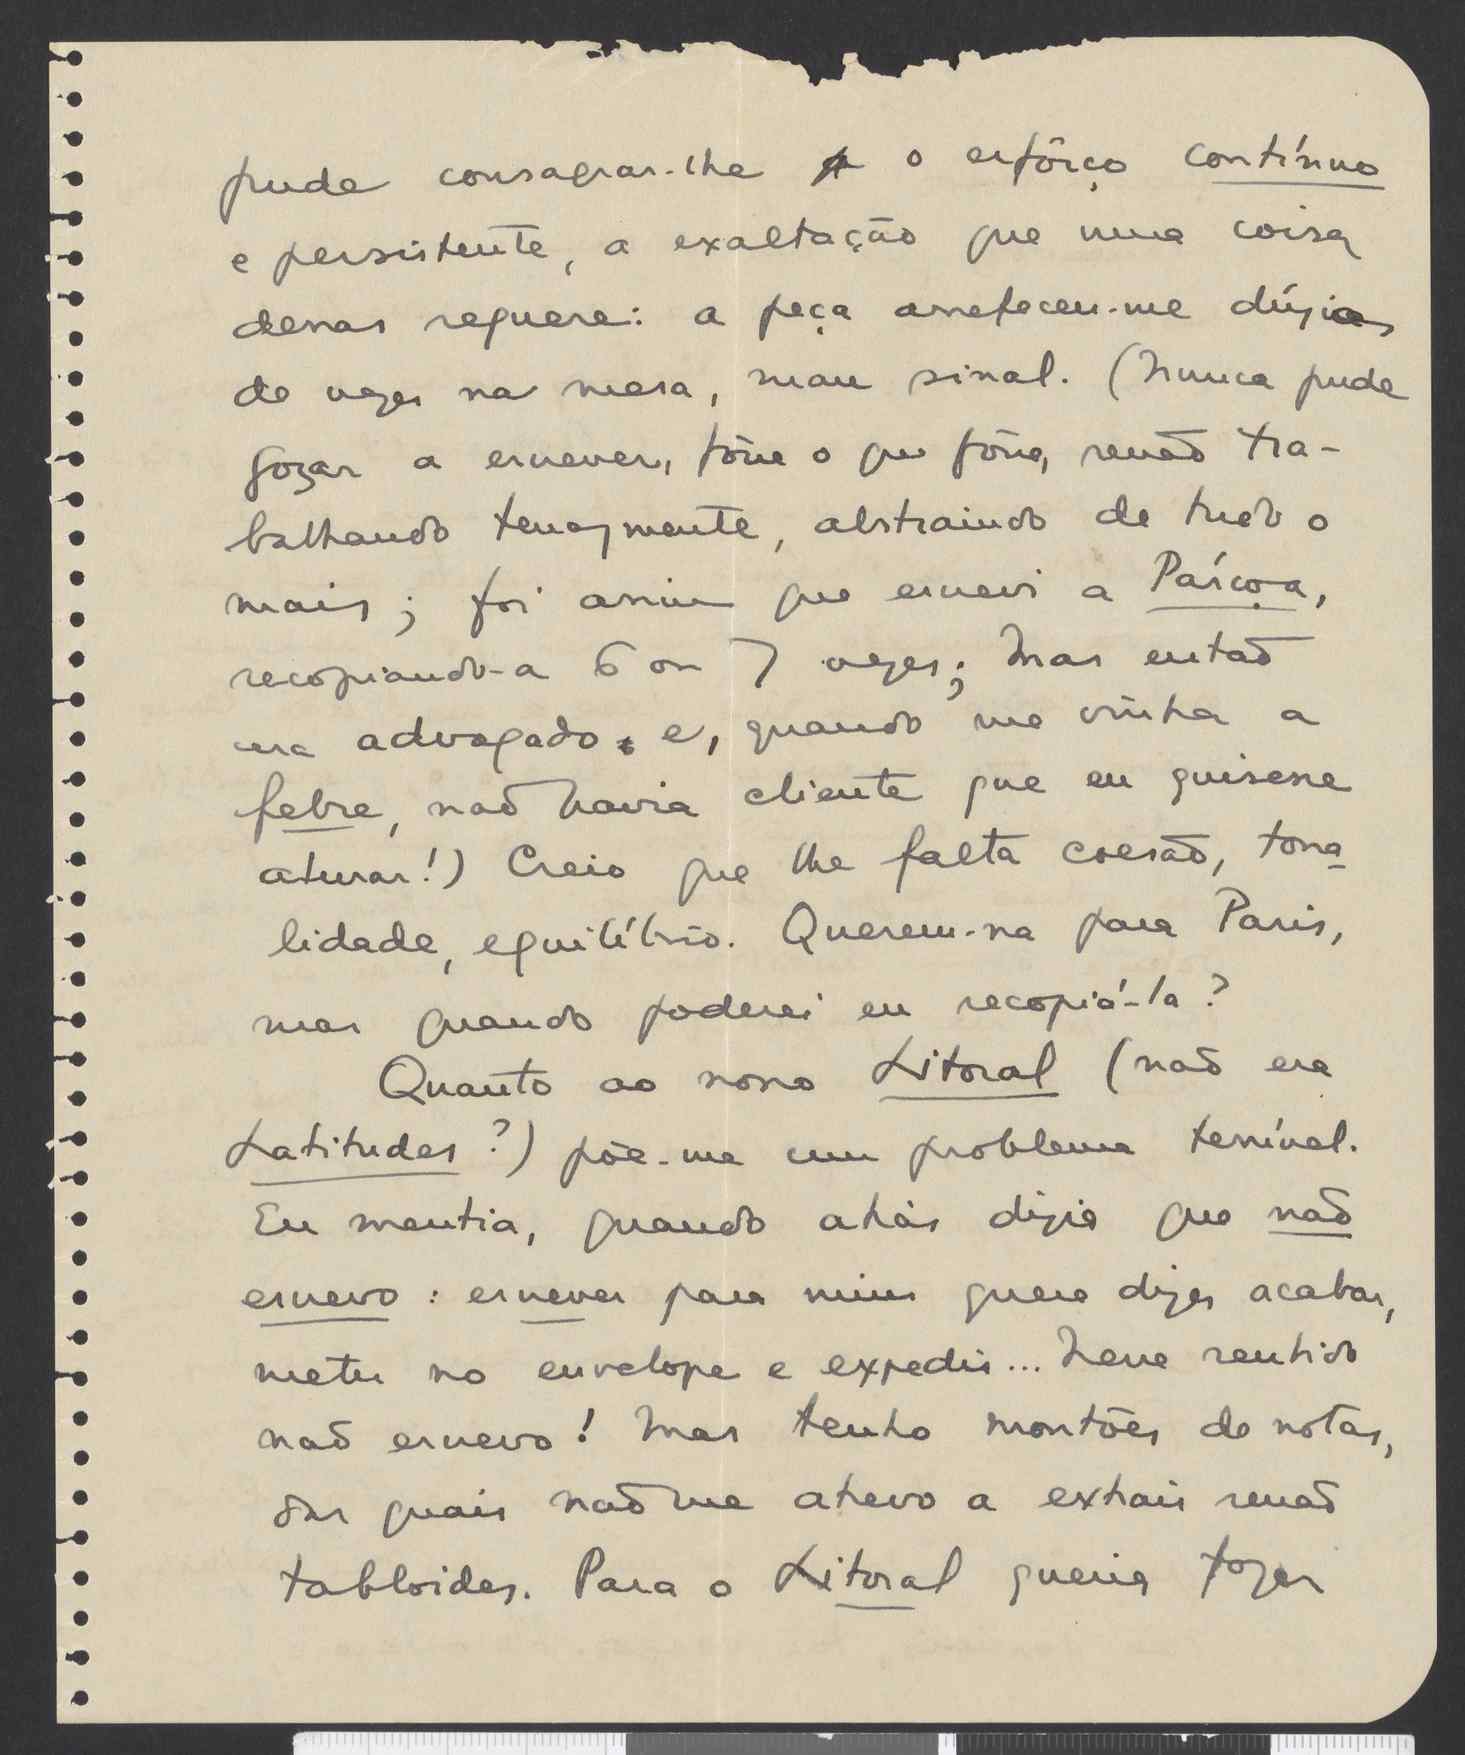 pude consagrar-lhe o esfôrço contínuo
e persistente, a exaltação que uma coisa
dessas requere: a peça arrefeceu-me dúzias
de vezes na mesa, mau sinal. (Nunca pude
gozar a escrever, fôsse o que fôsse, senão tra-
balhando tenazmente, abstraindo de tudo o
mais; foi assim que escrevi a Páscoa,
recopiando-a 6 ou 7 vezes; mas então
era advogado, e, quando me vinha a
febre, não havia cliente que eu quisesse
aturar!) Creio que lhe falta coesão, tona-
lidade, equilíbrio. Querem-na para Paris,
mas quando poderei eu recopiá-la?
Quanto ao nosso Litoral (não era
Latitudes?) põe-me um problema terrível.
Eu mentia, quando atrás dizia que não
escrevo: escrever para mim quere dizer acabar,
meter no envelope e expedir... Nesse sentido
não escrevo! Mas tenho montões de notas,
das quais não me atrevo a extrair senão
tabloides. Para o Litoral queria fazer